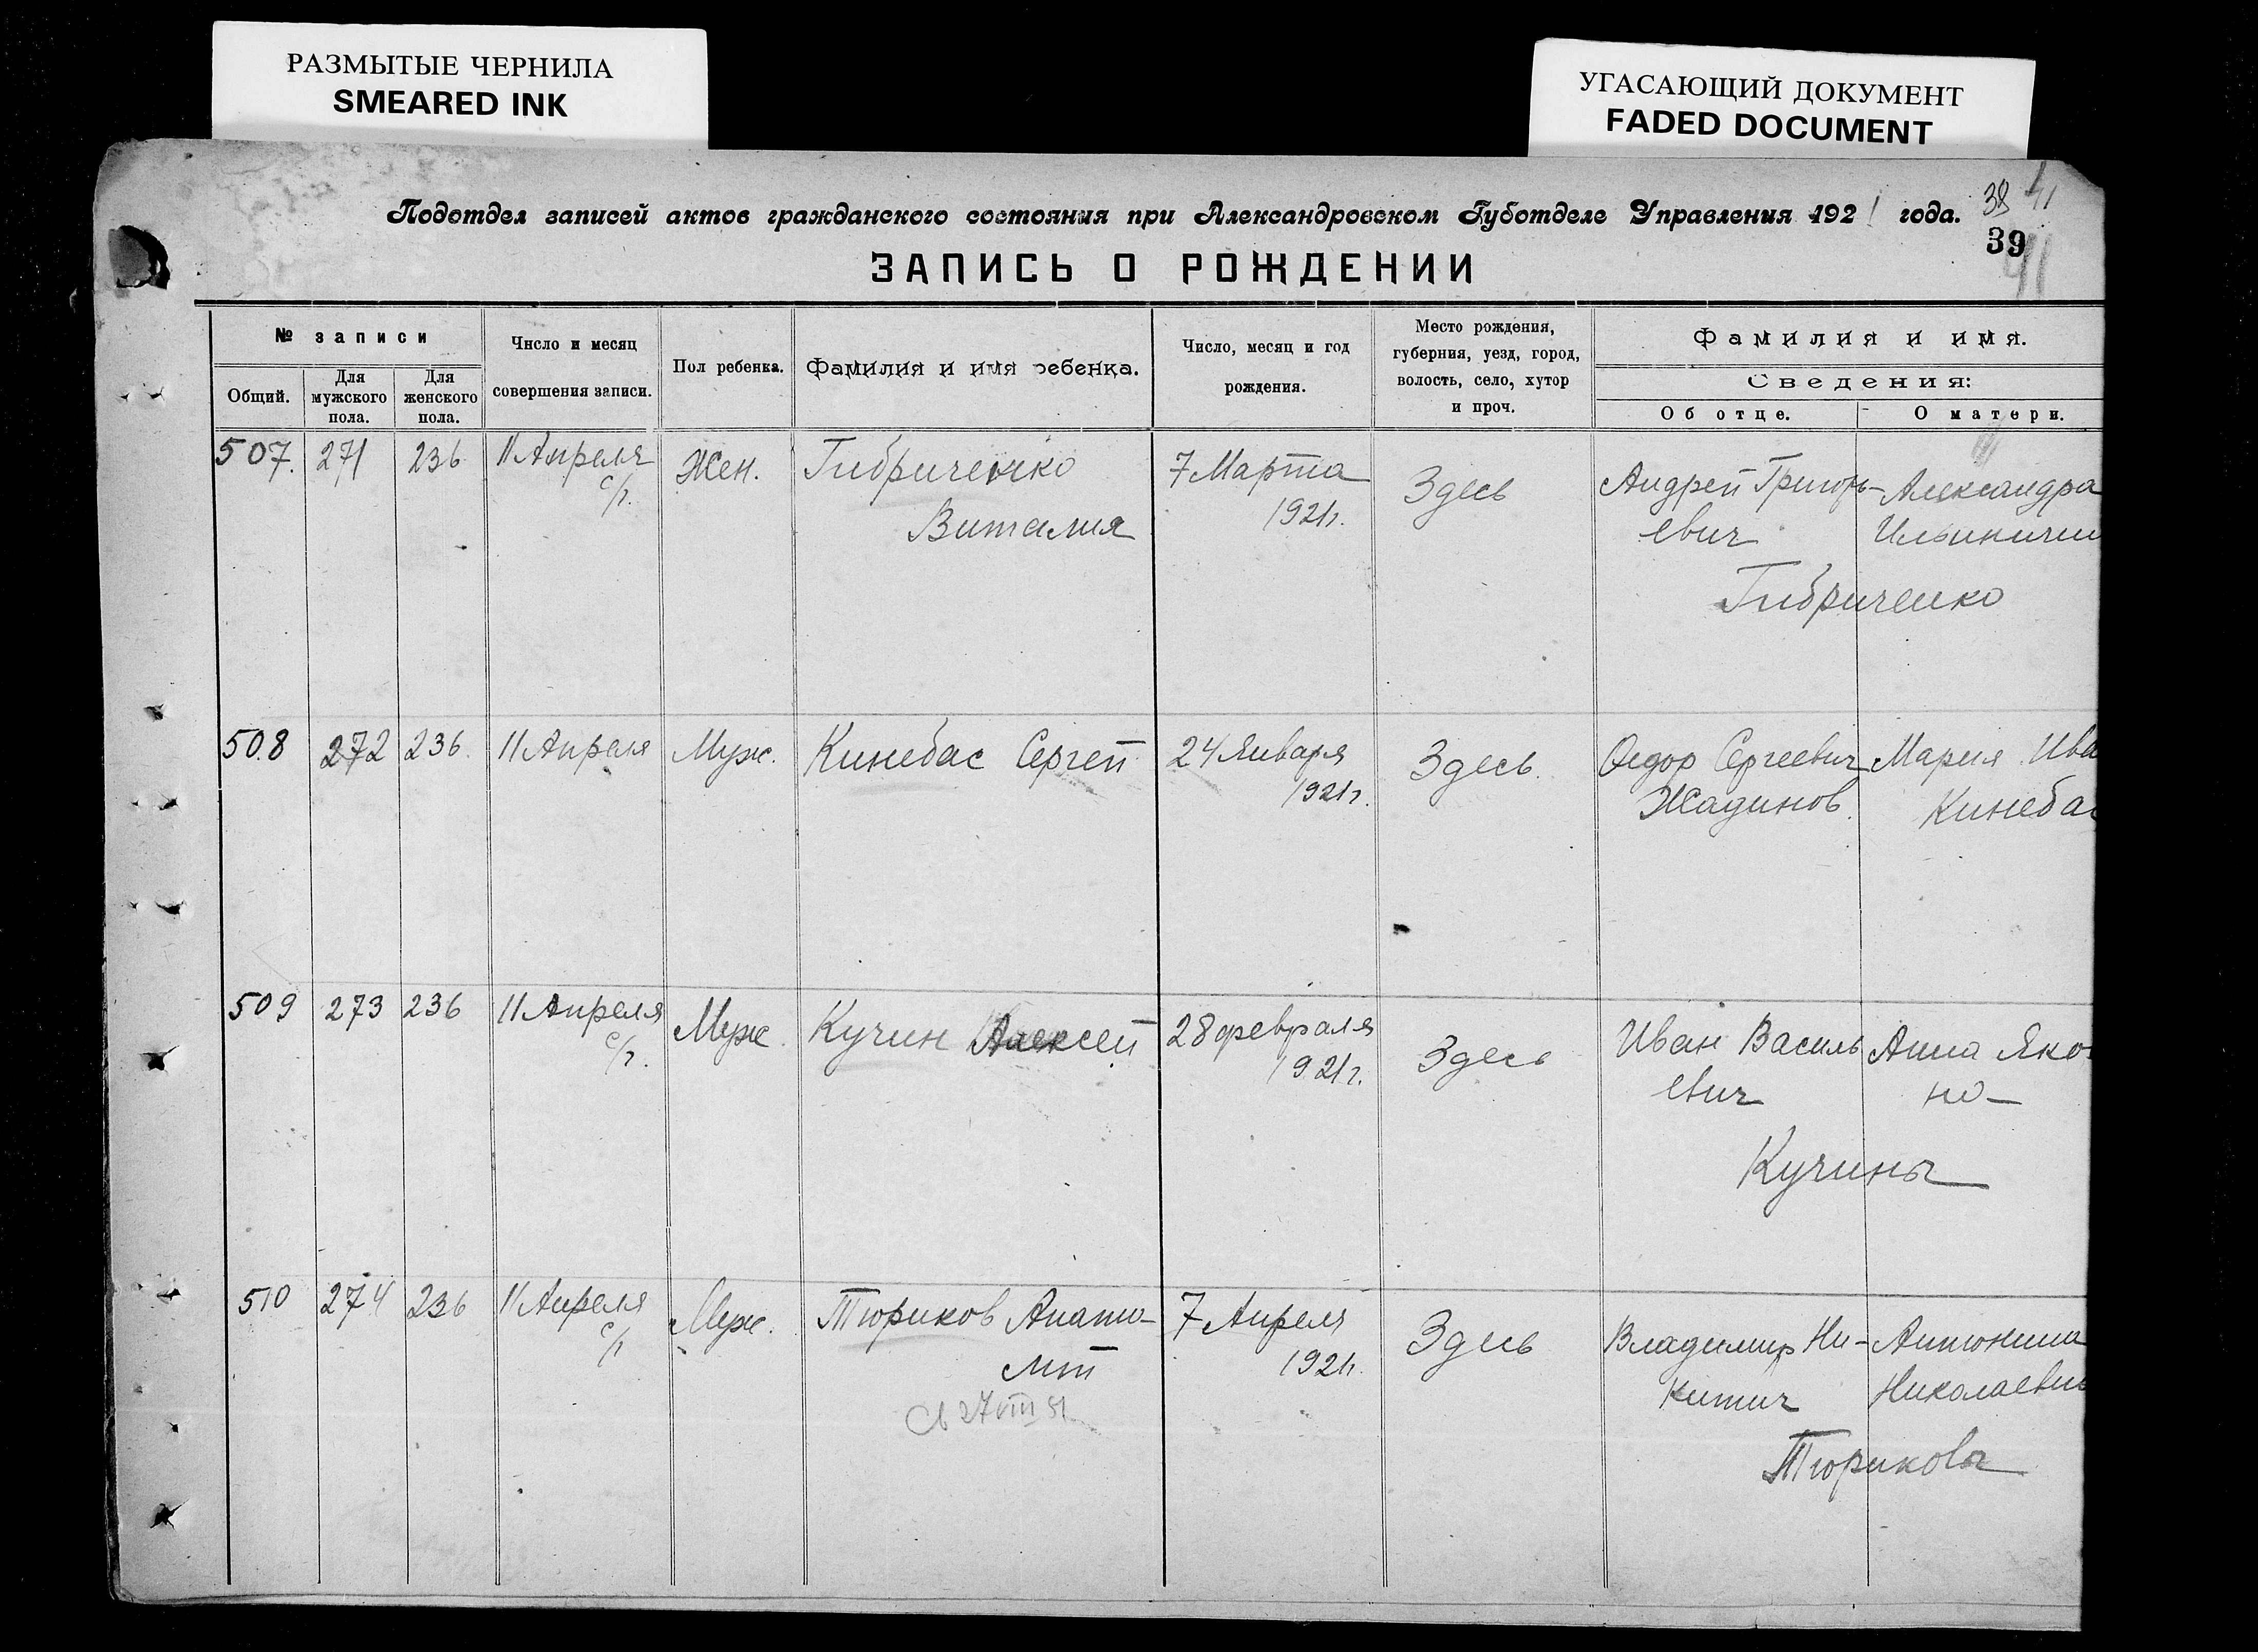 РАЗМЫТЫЕ ЧЕРНИЛА
SMEARED INK
УГАСАЮЩИЙ ДОКУМЕНТ
FADED DOCUMENT
Подотдел записей актов гражданского состояния при Александровском Губотделе Управления 1921 года.
38
41
39
41
ЗАПИСЬ О РОЖДЕНИИ
№ записи
Общий.
Для мужского пола.
Для женского пола.
Число и месяц
совершения записи.
Пол ребенка.
Фамилия и имя ребенка.
Число, месяц и год
рождения.
Место рождения,
губерния, уезд, город,
волость, село, хутор
и проч.
Фамилия и имя.
Сведения:
Об отце.
О матери.
507. 271 236 11 Апреля Жен. Гибриченко 7 Марта Здесь Андрей Григорь- Александра
с/г. Виталия 1921г. евич Ильинични
Гибриченко
508 272 236. 11 Апреля Муж. Кинебас Сергей 24 Января Здесь. Федор Сергеевич Мария Ива
1921г. Жадинов. Кинебас
509 273 236 11 Апреля Муж. Кучин Алексей 28 февраля Здесь Иван Василь Анна Яко
с/г. 1921г. евич
Кучины
510 274 236 11 Апреля Муж. Тюриков Анато- 7 Апреля Здесь Владимир Ни- Антонина
с/г лий 1921г. китич Николаевн
27 VIII 51
Тюриковы